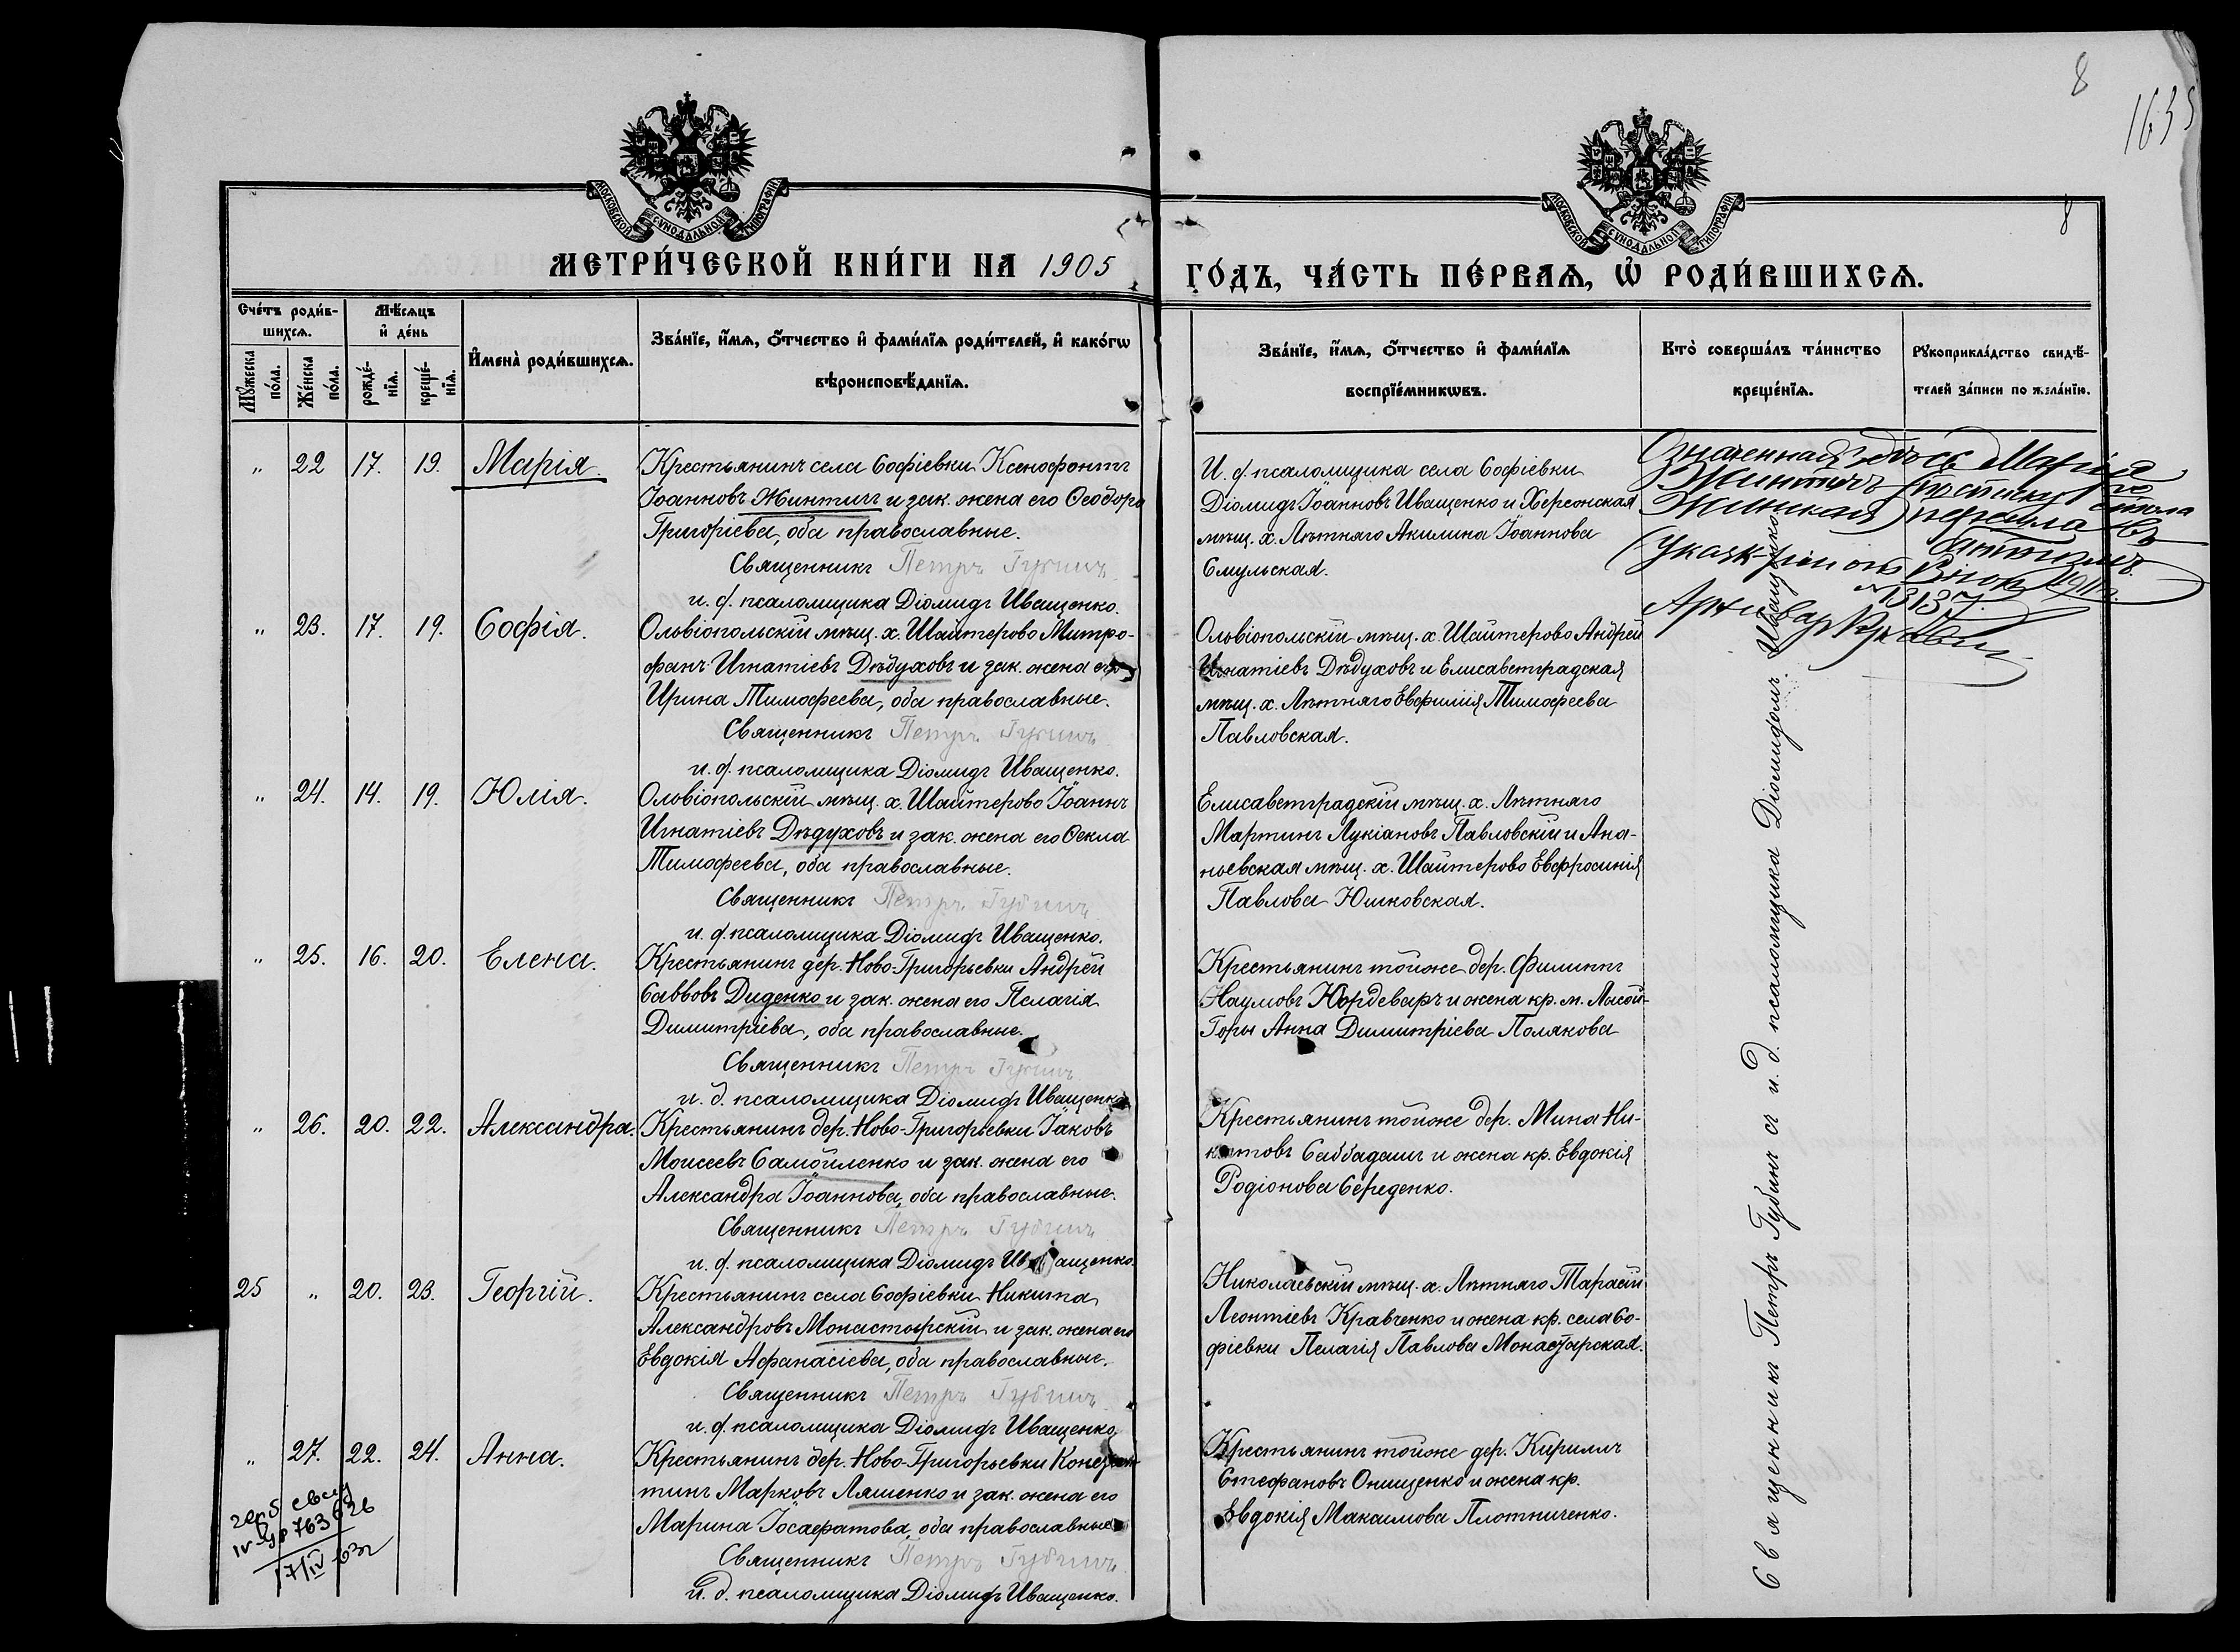 8
1635
8
МОСКОВСКОЙ СѴНОДАЛЬНОЙ ТИПОГРАФІИ
МОСКОВСКОЙ СѴНОДАЛЬНОЙ ТИПОГРАФІИ
МЕТРИ́ЧЕСКОЙ КНИ́ГИ НА 1905
ГО́ДЪ, ЧА́СТЬ ПЕ́РВАѦ, Ѡ҆ РОДИ́ВШИХСѦ.
Сче́тъ роди́в-
шихсѧ.
Мꙋ́жеска по́ла.
Же́нска по́ла.
Мѣ́сѧцъ
и҆ де́нь
рожде́-нїѧ.
креще́-нїѧ.
И҆мена̀ роди́вшихсѧ.
Зва́нїе, и҆́мѧ, ѻ҆́тчество и҆ фами́лїѧ роди́телей, и҆ како́гѡ
вѣроисповѣ́данїѧ.
Зва́нїе, и҆́мѧ, ѻ҆́тчество и҆ фами́лїѧ
воспрїе́мникѡвъ.
Кто̀ соверша́лъ та́инство
креще́нїѧ.
Рꙋкоприкла́дство свидѣ́-
телей за́писи по жела́нїю.
" 22 17. 19. Марія.
Крестьянинъ села Софіевки Ксенофонтъ
Іоанновъ Жинтичъ и зак. жена его Ѳеодора
Григоріева, оба православные.
Священникъ Петръ Губинъ
и. д. псаломщика Діомидъ Иващенко.
И. д. псаломщика села Софіевки
Діомидъ Іоанновъ Иващенко и Херсонская
мѣщ. х. Лѣтняго Акилина Іоаннова
Смульская.
Марія
Жинтичъ
1911
1313
" 23. 17. 19. Софія.
Ольвіопольскій мѣщ. х. Шайтерово Митро-
фанъ Игнатіевъ Дѣдуховъ и зак. жена его
Ирина Тимофеева, оба православные.
Священникъ Петръ Губинъ
и. д. псаломщика Діомидъ Иващенко.
Ольвіопольскій мѣщ. х. Шайтерово Андрей
Игнатіевъ Дѣдуховъ и Елисаветградская
мѣщ. х. Лѣтняго Евфимія Тимофеева
Павловская.
" 24. 14. 19. Юлія.
Ольвіопольскій мѣщ. х. Шайтерово Іоаннъ
Игнатіевъ Дѣдуховъ и зак. жена его Ѳекла
Тимофеева, оба православные.
Священникъ Петръ Губинъ
и. д. псаломщика Діомидъ Иващенко.
Елисаветградскій мѣщ. х. Лѣтняго
Мартинъ Лукіановъ Павловскій и Ана-
ньевская мѣщ. х. Шайтерово Евфросинія
Павлова Юшковская.
" 25. 16. 20. Елена.
Крестьянинъ дер. Ново-Григорьевки Андрей
Саввовъ Диденко и зак. жена его Пелагія
Димитріева, оба православные.
Священникъ Петръ Губинъ
и. д. псаломщика Діомидъ Иващенко
Крестьянинъ тойже дер. Филиппъ
Наумовъ и жена кр. м. Лысой-
Горы Анна Димитріева Полякова
" 26. 20. 22. Александра.
Крестьянинъ дер. Ново-Григорьевки Іаковъ
Моисеевъ Самойленко и зак. жена его
Александра Іоаннова, оба православные.
Священникъ Петръ Губинъ
и. д. псаломщика Діомидъ Иващенко.
Крестьянинъ тойже дер. Мина Ни-
китовъ Саббадашъ и жена кр. Евдокія
Родіонова Середенко.
25 " 20. 23. Георгій.
Крестьянинъ села Софіевки Никита
Александровъ Монастырскій и зак. жена его
Евдокія Афанасіева, оба православные.
Священникъ Петръ Губинъ
и. д. псаломщика Діомидъ Иващенко
Николаевскій мѣщ. х. Лѣтняго Тарасій
Леонтіевъ Кравченко и жена кр. села Со-
фіевки Пелагія Павлова Монастырская.
" 27. 22. 24. Анна.
Крестьянинъ дер. Ново-Григорьевки Констан-
тинъ Марковъ Ляшенко и зак. жена его
Марина Іосафатова, оба православные
Священникъ Петръ Губинъ
и. д. псаломщика Діомидъ Иващенко.
Крестьянинъ тойже дер. Кириллъ
Стефановъ Онищенко и жена кр.
Евдокія Максимова Плотниченко.
Священникъ Петръ Губинъ съ и. д. псаломщика Діомидомъ Иващенко